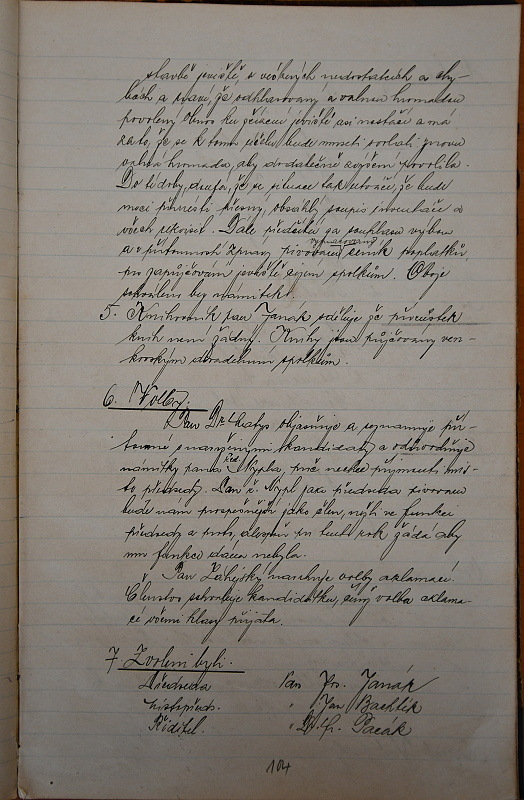 stavbě jeviště, o různých nedostatcích a chy-
bách a praví, že odhlasovaný a valnou hromadou
povolený obnos ku zřízení jeviště asi nestačí a má
za to, že se k tomu účelu bude museti svolati znovu
valná hromada, aby dodatečně zvýšení povolila.
Do té doby, doufá, že se situace tak utváří, že bude
moci přinésti přesný, obsáhlý soupis inventáře a
všech rekvisit. Dále předčítá za souhlasu výboru
a v přítomnosti správy pivovaru vypracovaný ceník poplatků
za zapůjčování jeviště cizím spolkům. Oboje
schváleno bez námitek.
5. Knihovník pan Janák sděluje že přírůstek
knih není žádný. Knihy jsou půjčovány ven-
kovským divadelním spolkům.
6. Volby.
Pan Dr. objasňuje a seznamuje pří-
tomné s navrženými kandidáty a odůvodňuje
námitky pana řed. Nypla, proč nechce přijmouti mís-
to předsedy. Pan ř. Nypl jako předseda pivovaru
bude nám prospěšnější jako člen, nežli ve funkci
předsedy a proto, alespoň pro tento rok žádá aby
mu funkce dána nebyla.
Pan Zahejský navrhuje volby aklamací.
Členstvo schvaluje kandidátku, čímž volba aklama-
cí všemi hlasy přijata.
7. Zvoleni byli.
Předseda Pan Jos. Janák
Místopředs. " Jan Bachlík
Ředitel. " Dr. Fr. Pacák
104